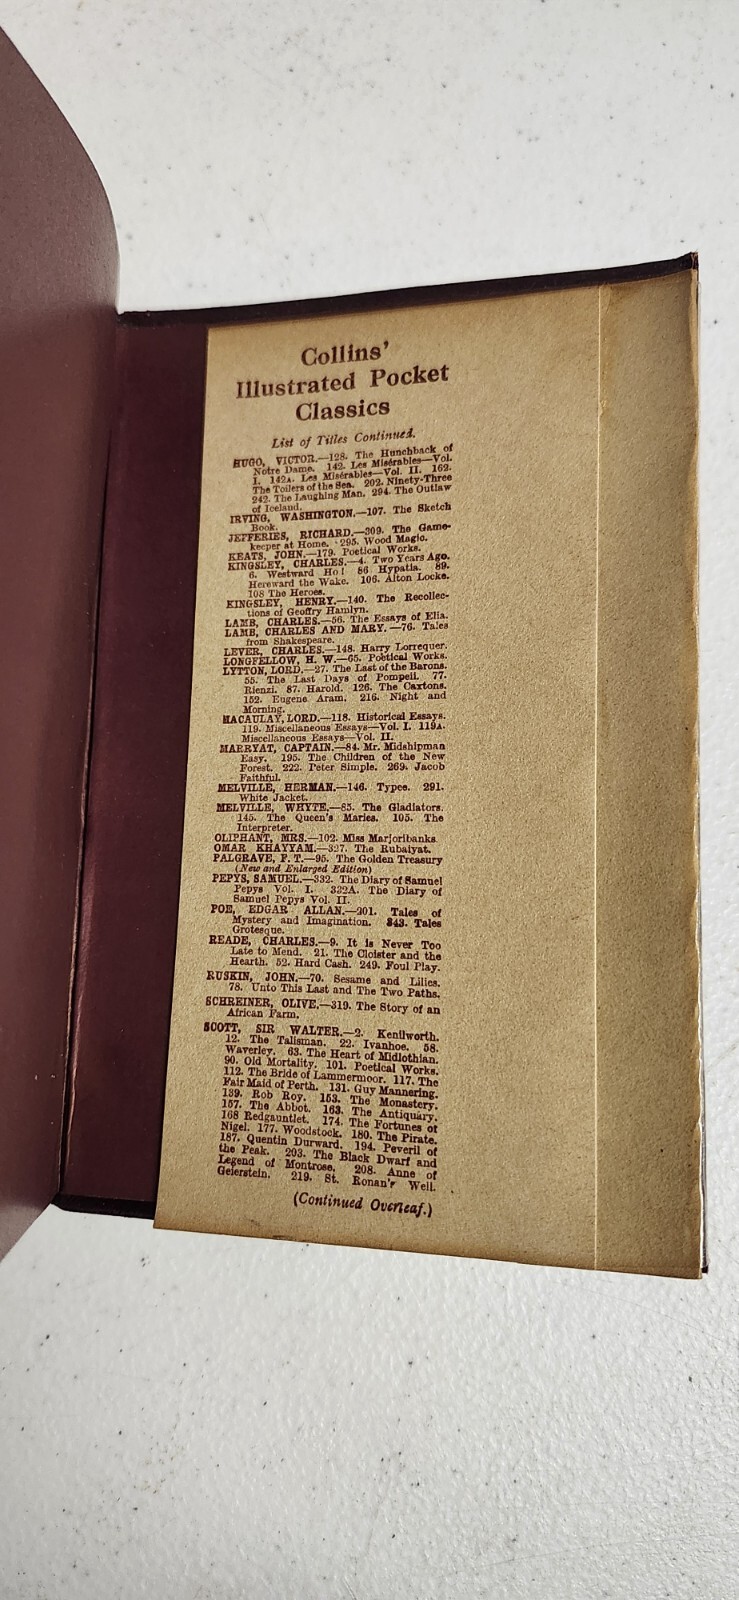 Collins'
Illustrated Pocket
Classics
List of Titles Continued.
HUGO, VICTOR.—128. The Hunchback of
Notre Dame. 142. Les Misérables—Vol.
I. 142A. Les Misérables—Vol. II. 162.
The Toilers of the Sea. 202. Ninety-Three
242. The Laughing Man. 294. The Outlaw
of Iceland.
IRVING, WASHINGTON.—107. The Sketch
Book.
JEFFERIES, RICHARD.—309. The Game-
keeper at Home. 295. Wood Magic.
KEATS, JOHN.—179. Poetical Works.
KINGSLEY, CHARLES.—4. Two Years Ago.
6. Westward Ho! 86 Hypatia. 89.
Hereward the Wake. 106. Alton Locke.
108 The Heroes.
KINGSLEY, HENRY.—140. The Recollec-
tions of Geoffry Hamlyn.
LAMB, CHARLES.—56. The Essays of Elia.
LAMB, CHARLES AND MARY.—76. Tales
from Shakespeare.
LEVER, CHARLES.—148. Harry Lorrequer.
LONGFELLOW, H. W.—65. Poetical Works.
LYTTON, LORD.—27. The Last of the Barons.
55. The Last Days of Pompeii. 77.
Rienzi. 87. Harold. 126. The Caxtons.
152. Eugene Aram. 216. Night and
Morning.
MACAULAY, LORD.—118. Historical Essays.
119. Miscellaneous Essays—Vol. I. 119A.
Miscellaneous Essays—Vol. II.
MARRYAT, CAPTAIN.—84. Mr. Midshipman
Easy. 195. The Children of the New
Forest. 222. Peter Simple. 269. Jacob
Faithful.
MELVILLE, HERMAN.—146. Typee. 291.
White Jacket.
MELVILLE, WHYTE.—85. The Gladiators.
145. The Queen's Maries. 105. The
Interpreter.
OLIPHANT, MRS.—102. Miss Marjoribanks
OMAR KHAYYAM.—327. The Rubaiyat.
PALGRAVE, F. T.—95. The Golden Treasury
(New and Enlarged Edition)
PEPYS, SAMUEL.—332. The Diary of Samuel
Pepys Vol. I. 332A. The Diary of
Samuel Pepys Vol. II.
POE, EDGAR ALLAN.—201. Tales of
Mystery and Imagination. 343. Tales
Grotesque.
READE, CHARLES.—9. It is Never Too
Late to Mend. 21. The Cloister and the
Hearth. 52. Hard Cash. 249. Foul Play.
RUSKIN, JOHN.—70. Sesame and Lilies.
78. Unto This Last and The Two Paths.
SCHREINER, OLIVE.—319. The Story of an
African Farm.
SCOTT, SIR WALTER.—2. Kenilworth.
12. The Talisman. 22. Ivanhoe. 58.
Waverley. 63. The Heart of Midlothian.
90. Old Mortality. 101. Poetical Works.
112. The Bride of Lammermoor. 117. The
Fair Maid of Perth. 131. Guy Mannering.
139. Rob Roy. 153. The Monastery.
157. The Abbot. 163. The Antiquary.
168 Redgauntlet. 174. The Fortunes of
Nigel. 177. Woodstock. 180. The Pirate.
187. Quentin Durward. 194. Peveril of
the Peak. 203. The Black Dwarf and
Legend of Montrose. 208. Anne of
Geierstein. 219. St. Ronan's Well.
(Continued Overleaf.)